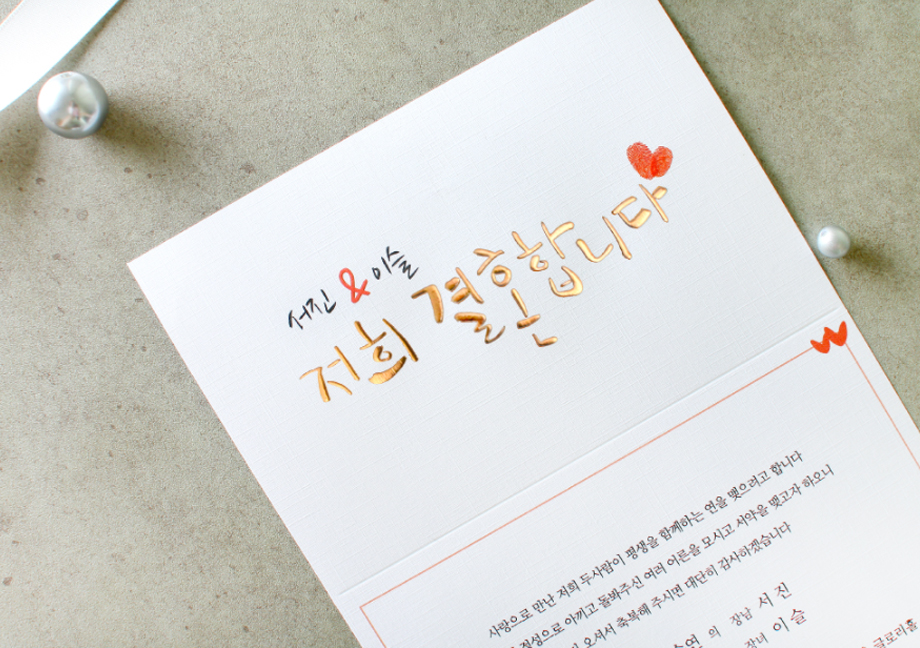 서진 & 이슬
저희 결혼합니다
사랑으로 만난 저희 두사람이 평생을 함께하는 연을 맺으려고 합니다
정성으로 아끼고 돌봐주신 여러 어른을 모시고 서약을 맺고자 하오니
오셔서 축복해 주시면 대단히 감사하겠습니다
의 장남 서 진
장녀 이 슬
글로리홀